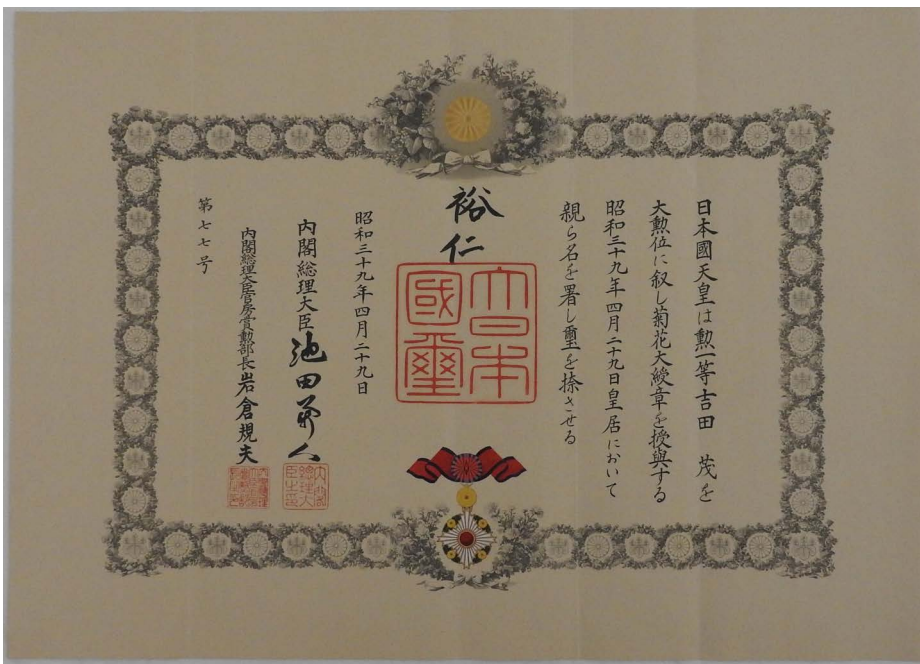 日本國天皇は勲一等吉田 茂を
大勲位に叙し菊花大綬章を授與する
昭和三十九年四月二十九日皇居において
親ら名を署し璽を捺させる
裕仁
大日本
國璽
昭和三十九年四月二十九日
内閣総理大臣 池田勇人
内閣総理大臣官房賞勲部長 岩倉規夫
第七七号
内閣
總理大
臣之印